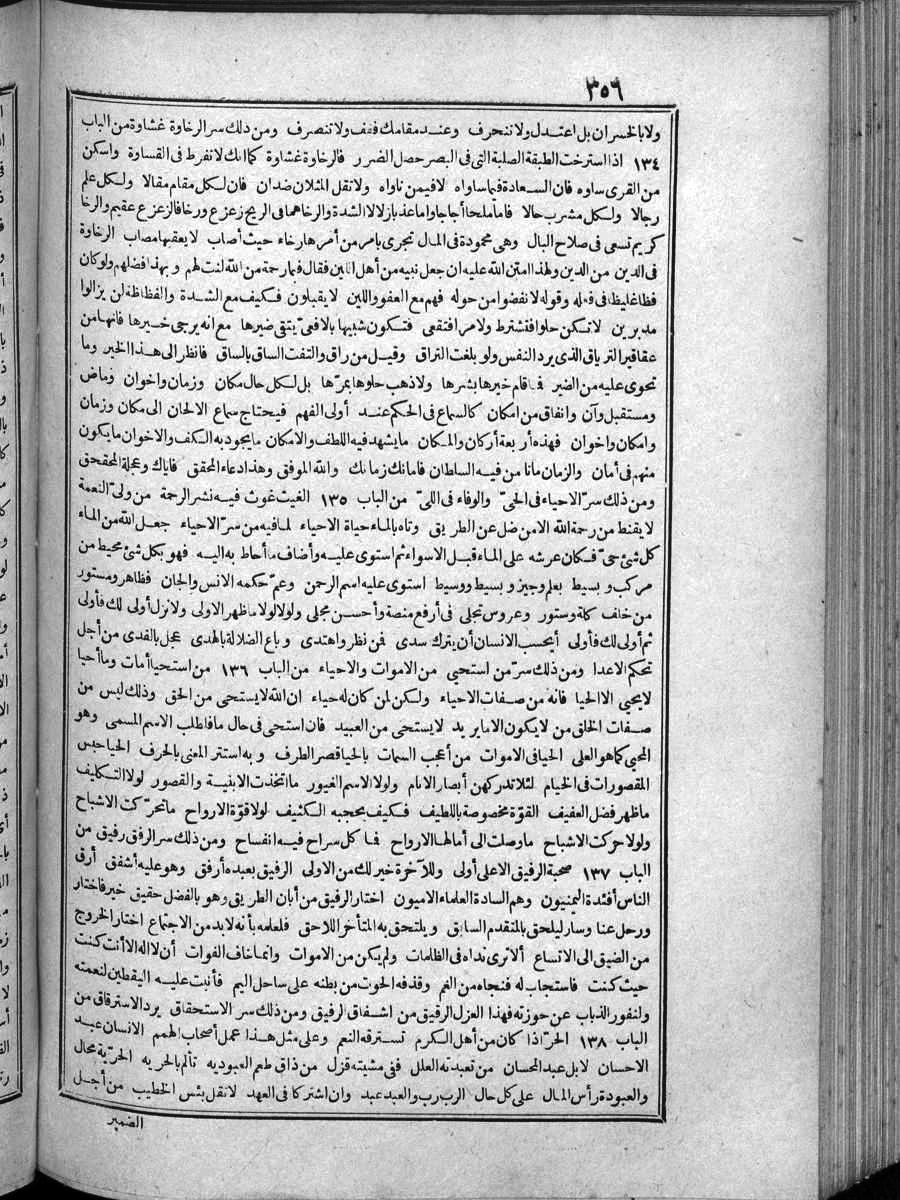 ٣٥٦
ولا بالخسران بل اعتدل ولا تنحرف وعند مقامك فقف ولا تنصرف ومن ذلك سر الرخاوة غشاوة من الباب
١٣٤ اذا استرخت الطبقة الصلبة التي في البصر حصل الضرر فالرخاوة غشاوة كما انك لا تفرط في القساوة واسكن
من القرى ساوه فان السعادة فيما ساواه لا فيمن ناواه ولا تقل المثلان ضدان فان لكل مقام مقالا ولكل علم
رجالا ولكل مشرب حالا فاما ملحا أجاجا واما عذبا زلالا الشدة والرخا هما في الريح زعزع ورخا فالزعزع عقيم والرخا
كريم تسعى في صلاح البال وهي محمودة في المال تجرى بامر من أمرها رخاء حيث أصاب لا يعقبها مصاب الرخاوة
في الدين من الدين ولهذا امتن الله عليه ان جعل نبيه من أهل اللين فقال فبما رحمة من الله لنت لهم وبهذا فضلهم ولو كان
فظا غليظا في فعله وقوله لانفضوا من حوله فهم مع العفو واللين لا يقبلون فكيف مع الشدة والفظاظة لن يزالوا
مدبرين لا تكن حلوا فتسترط ولا مرا فتعقى فتكون شبيها بالافعى يتقى ضيرها مع انه يرجى خيرها فانها من
عقاقير الترياق الذي يرد النفس ولو بلغت التراق وقيل من راق والتفت الساق بالساق فانظر الى هذا الخبر وما
تحوى عليه من الضير فما قام خيرها بشرها ولا ذهب حلوها بمرها بل لكل حال مكان وزمان واخوان وماض
ومستقبل وآن واتفاق من امكان كالسماع في الحكم عند أولى الفهم فيحتاج سماع الالحان الى مكان وزمان
وامكان واخوان فهذه أربعة أركان والمكان ما يشهد فيه اللطف والامكان ما يجود به الكف والاخوان ما يكون
منهم في أمان والزمان ما تأمن فيه السلطان فامانك زمانك والله الموفق وهذا دعاء المحقق فاياك وعجلة المحقحق
ومن ذلك سر الاحياء في الحي والوفاء في اللي من الباب ١٣٥ الغيث غوث فيه نشر الرحمة من ولى النعمة
لا يقنط من رحمة الله الا من ضل عن الطريق وتاه بالماء حياة الاحياء لما فيه من سر الاحياء جعل الله من الماء
كل شئ حي فكان عرشه على الماء قبل الاسواء ثم استوى عليه وأضاف ما أحاط به اليه فهو بكل شئ محيط من
مركب وبسيط بعلم وجيز وبسيط ووسيط استوى عليه اسم الرحمن وعم حكمه الانس والجان فظاهر ومستور
من خلف كلة وستور وعروس تجلى في أرفع منصة وأحسن مجلى ولولا لولا ما ظهر الاولى ولا نزل أولى لك فأولى
ثم أولى لك فأولى أيحسب الانسان أن يترك سدى فمن نظر واهتدى وباع الضلالة بالهدى عجل بالفدى من أجل
تحكم الاعدا ومن ذلك سر من استحيى من الاموات والاحياء من الباب ١٣٦ من استحيا أمات وما أحيا
لا يحيى الا الحيا فانه من صفات الاحياء ولكن لمن كان له حياء ان الله لا يستحى من الحق وذلك ليس من
صفات الخلق من لا يكون الا ما يريد لا يستحى من العبيد فان استحى في حال ما فاطلب الاسم المسمى وهو
المحيي كما هو العلى الحيا في الاموات من أعجب السمات بالحيا قصر الطرف وبه استتر المعنى بالحرف الحيا حبس
المقصورات في الخيام لئلا تدركهن أبصار الانام ولولا الاسم الغيور ما اتخذت الابنية والقصور لولا التكليف
ما ظهر فضل العفيف القوة مخصوصة باللطيف فكيف بحجبه الكثيف لولا قوة الارواح ما تحركت الاشباح
ولولا حركت الاشباح ما وصلت الى أمالها الارواح فما كل سراح فيه انفساح ومن ذلك سر الرفق رفيق من
الباب ١٣٧ صحبة الرفيق الاعلى أولى وللآخرة خير لك من الاولى الرفيق بعبده أرفق وهو عليه أشفق أرق
الناس أفئدة اليمنيون وهم السادة العلماء الاميون اختار الرفيق من أبان الطريق وهو بالفضل حقيق خير فاختار
ورحل عنا وسار ليلحق بالمتقدم السابق ويلتحق به المتأخر اللاحق فلعلمه بأنه لا بد من الاجتماع اختار الخروج
من الضيق الى الاتساع ألا ترى نداه في الظلمات ولم يكن من الاموات وانما خاف الفوات أن لا اله الا أنت كنت
حيث كنت فاستجاب له فنجاه من الغم وقذفه الحوت من بطنه على ساحل اليم فأنبت عليه اليقطين لنعمته
ولنفور الذباب عن حوزته فهذا العزل الرقيق من اشفاق الرفيق ومن ذلك سر الاستحقاق يرد الاسترقاق من
الباب ١٣٨ الحر اذا كان من أهل الكرم تسترقه النعم وعلى مثل هذا عمل أصحاب الهمم الانسان عبد
الاحسان لا بل عبد المحسان من تعبدته العلل ففى مشيته قزل من ذاق طعم العبوديه تألم بالحريه الحرية محال
والعبودة رأس المال على كل حال الرب رب والعبد عبد وان اشتركا في العهد لا تقل بئس الخطيب من أجل
الضمير